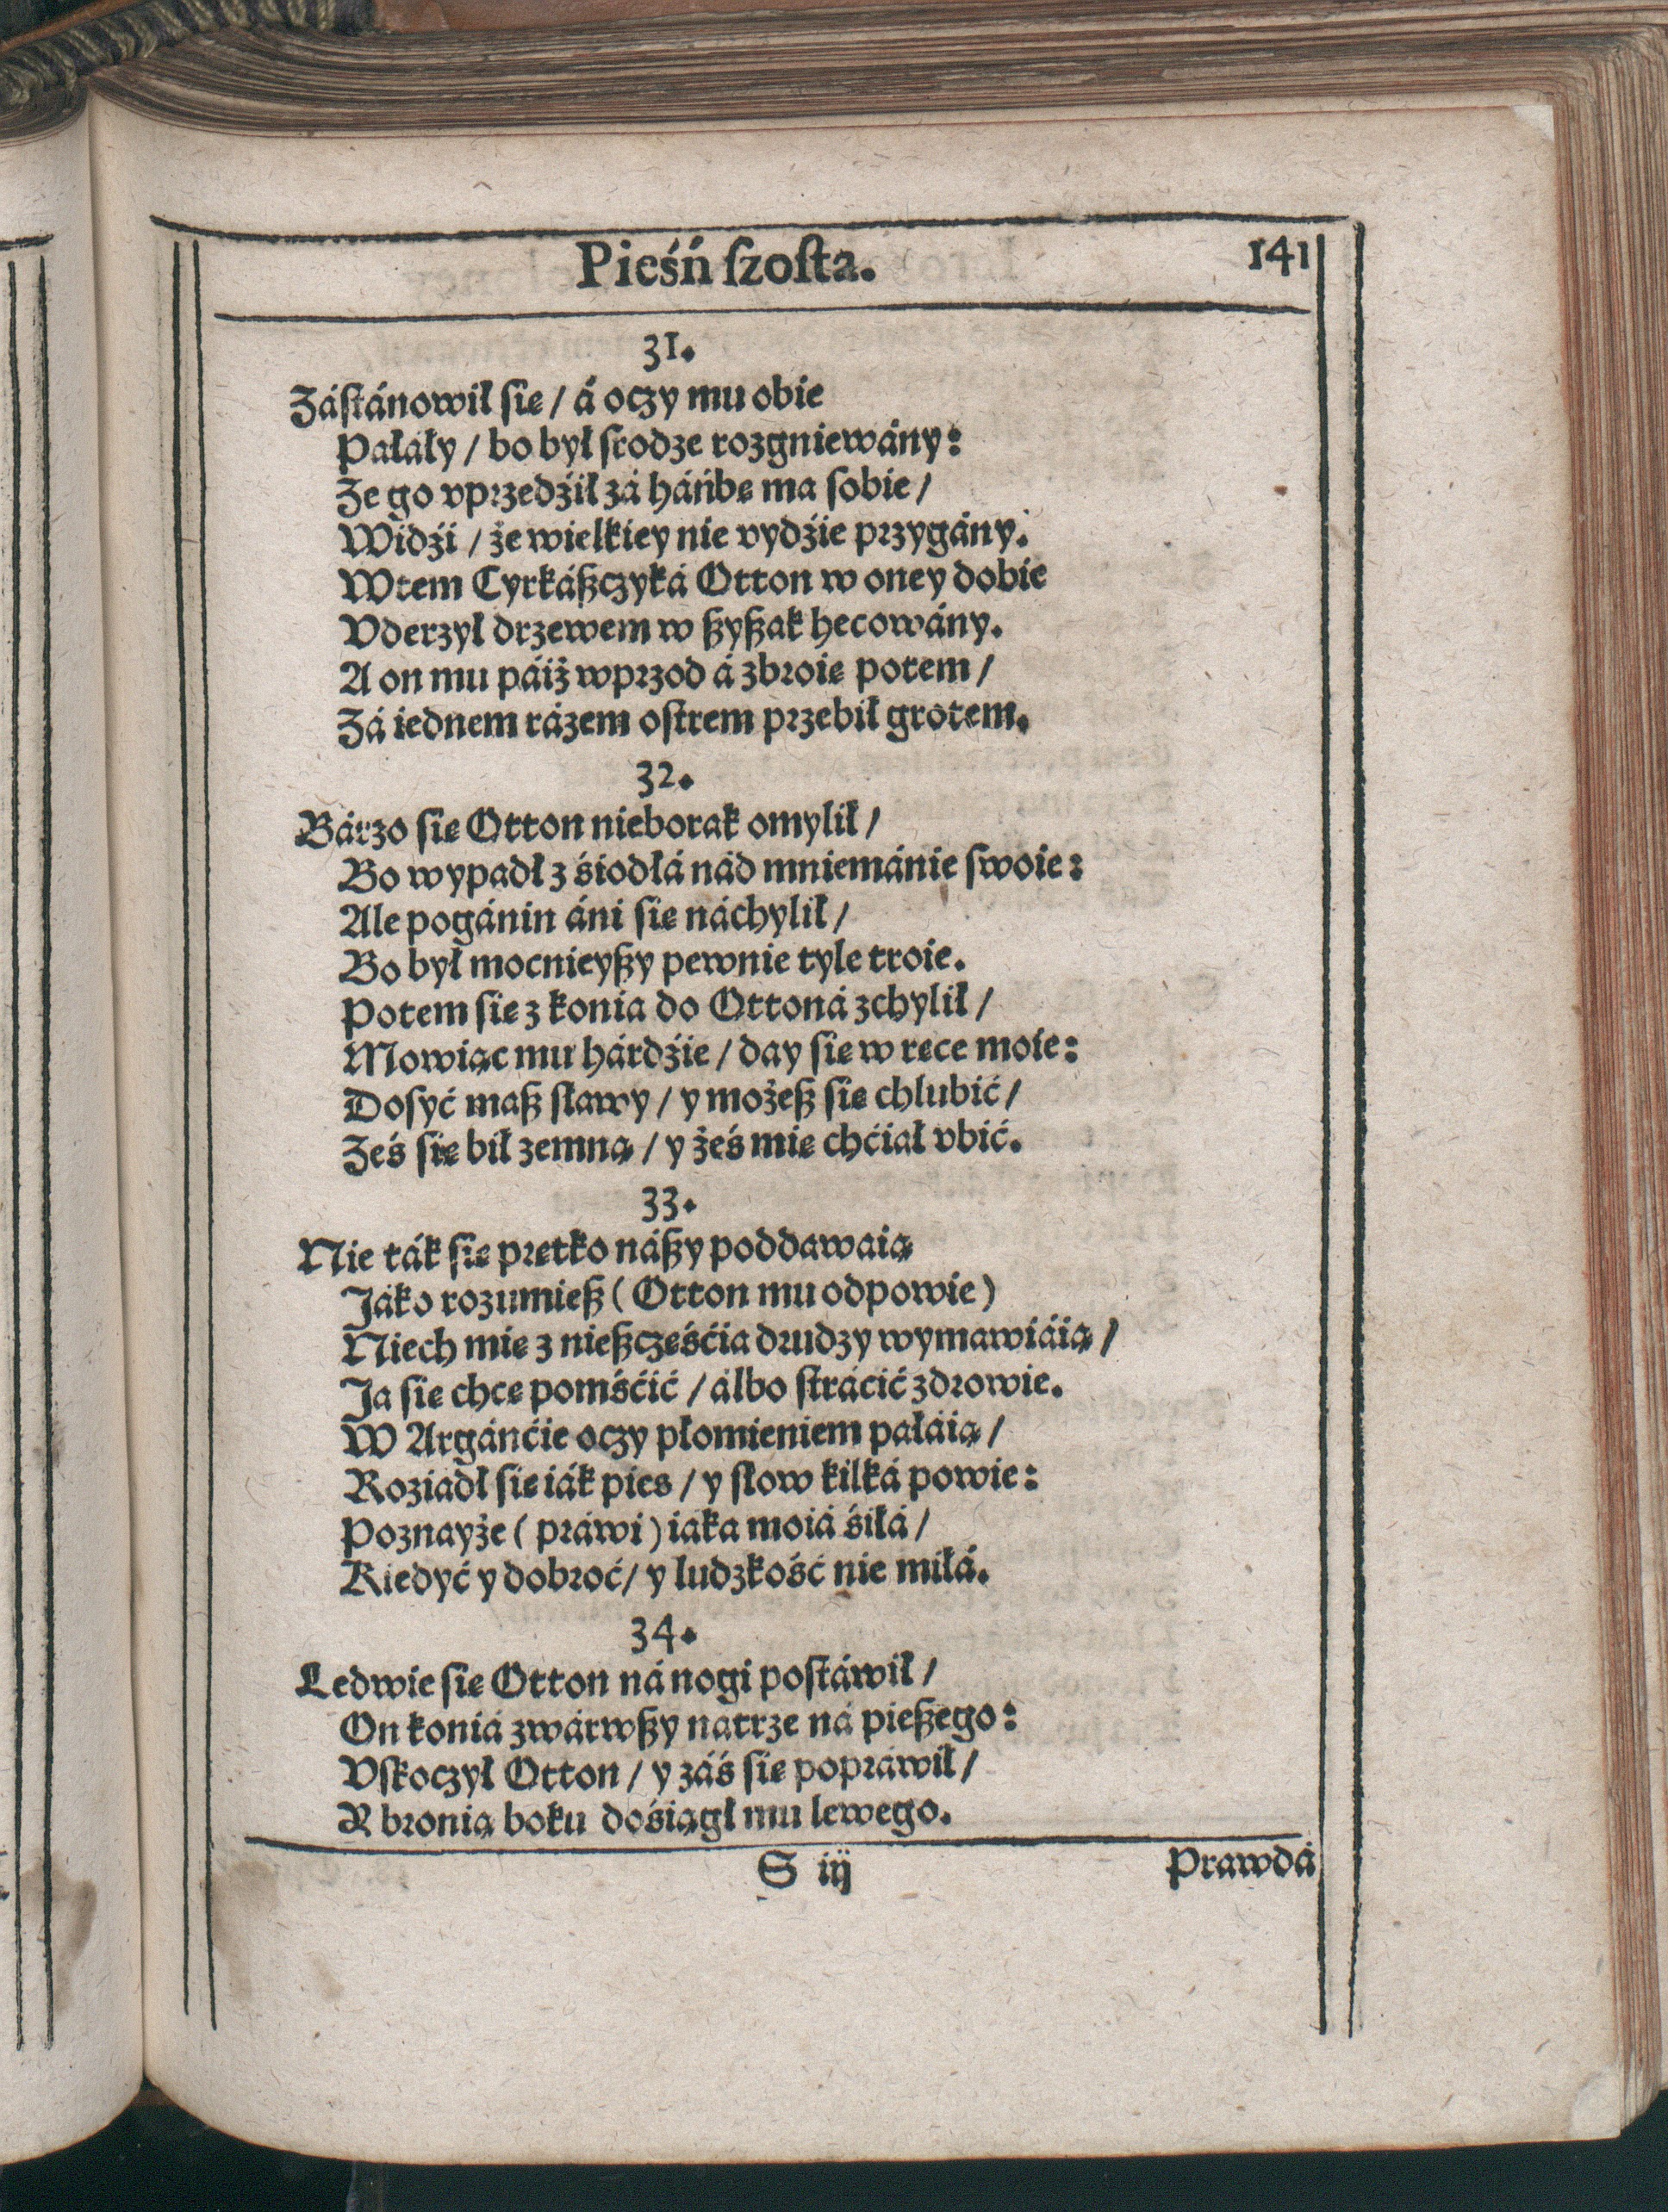 Pieśń ſzoſta.
141
31.
Záſtánowił ſię / á oczy mu obie
Pałáły / bo był ſrodze rozgniewány:
Że go vprzedźił zá háńbę ma ſobie /
Widźi / że wielkiey nie vydźie przygány.
Wtem Cyrkáßczyká Otton w oney dobie
Vderzył drzewem w ßyßak hecowány.
A on mu páiż wprzod á zbroię potem /
Zá iednem rázem oſtrem przebił grotem.
32.
Bárzo ſię Otton nieborak omylił /
Bo wypadł z śiodłá nád mniemánie ſwoie:
Ale pogánin áni ſię náchylił /
Bo był mocnieyßy pewnie tyle troie.
Potem ſię z konia do Ottoná zchylił /
Mowiąc mu hárdźie / day ſię w ręce moie:
Doſyć maß ſławy / y możeß ſię chlubić /
Żeś ſię bił zemną / y żeś mię chćiał vbić.
33.
Nie ták ſię prętko náßy poddawaią
Jáko rozumieß (Otton mu odpowie)
Niech mię z nießczęśćia drudzy wymawiáią /
Ja ſię chcę pomśćić / álbo ſtrácić zdrowie.
W Argánćie oczy płomieniem pałáią /
Roziadł ſię iák pies / y ſłow kilká powie:
Poznayże (práwi) iáka moiá śiłá /
Kiedyć y dobroć / y ludzkość nie miłá.
34.
Ledwie ſię Otton ná nogi poſtáwił /
On koniá zwárwßy natrze ná pießego:
Vſkoczył Otton / y záś ſię popráwił /
R bronią boku dośiągł mu lewego.
S iij
Prawdá